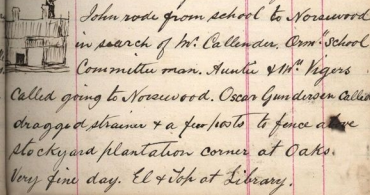 John rode from school to Norsewood
in search of Mr. Callender, Orm.ll School
Committee man. Auntie & Mrs. Vigers
called going to Norsewood. Oscar Gundersen called
dragged strainer & a few posts to fence above
stockyard plantation corner at Oaks.
Very fine day. El & Top at Library.